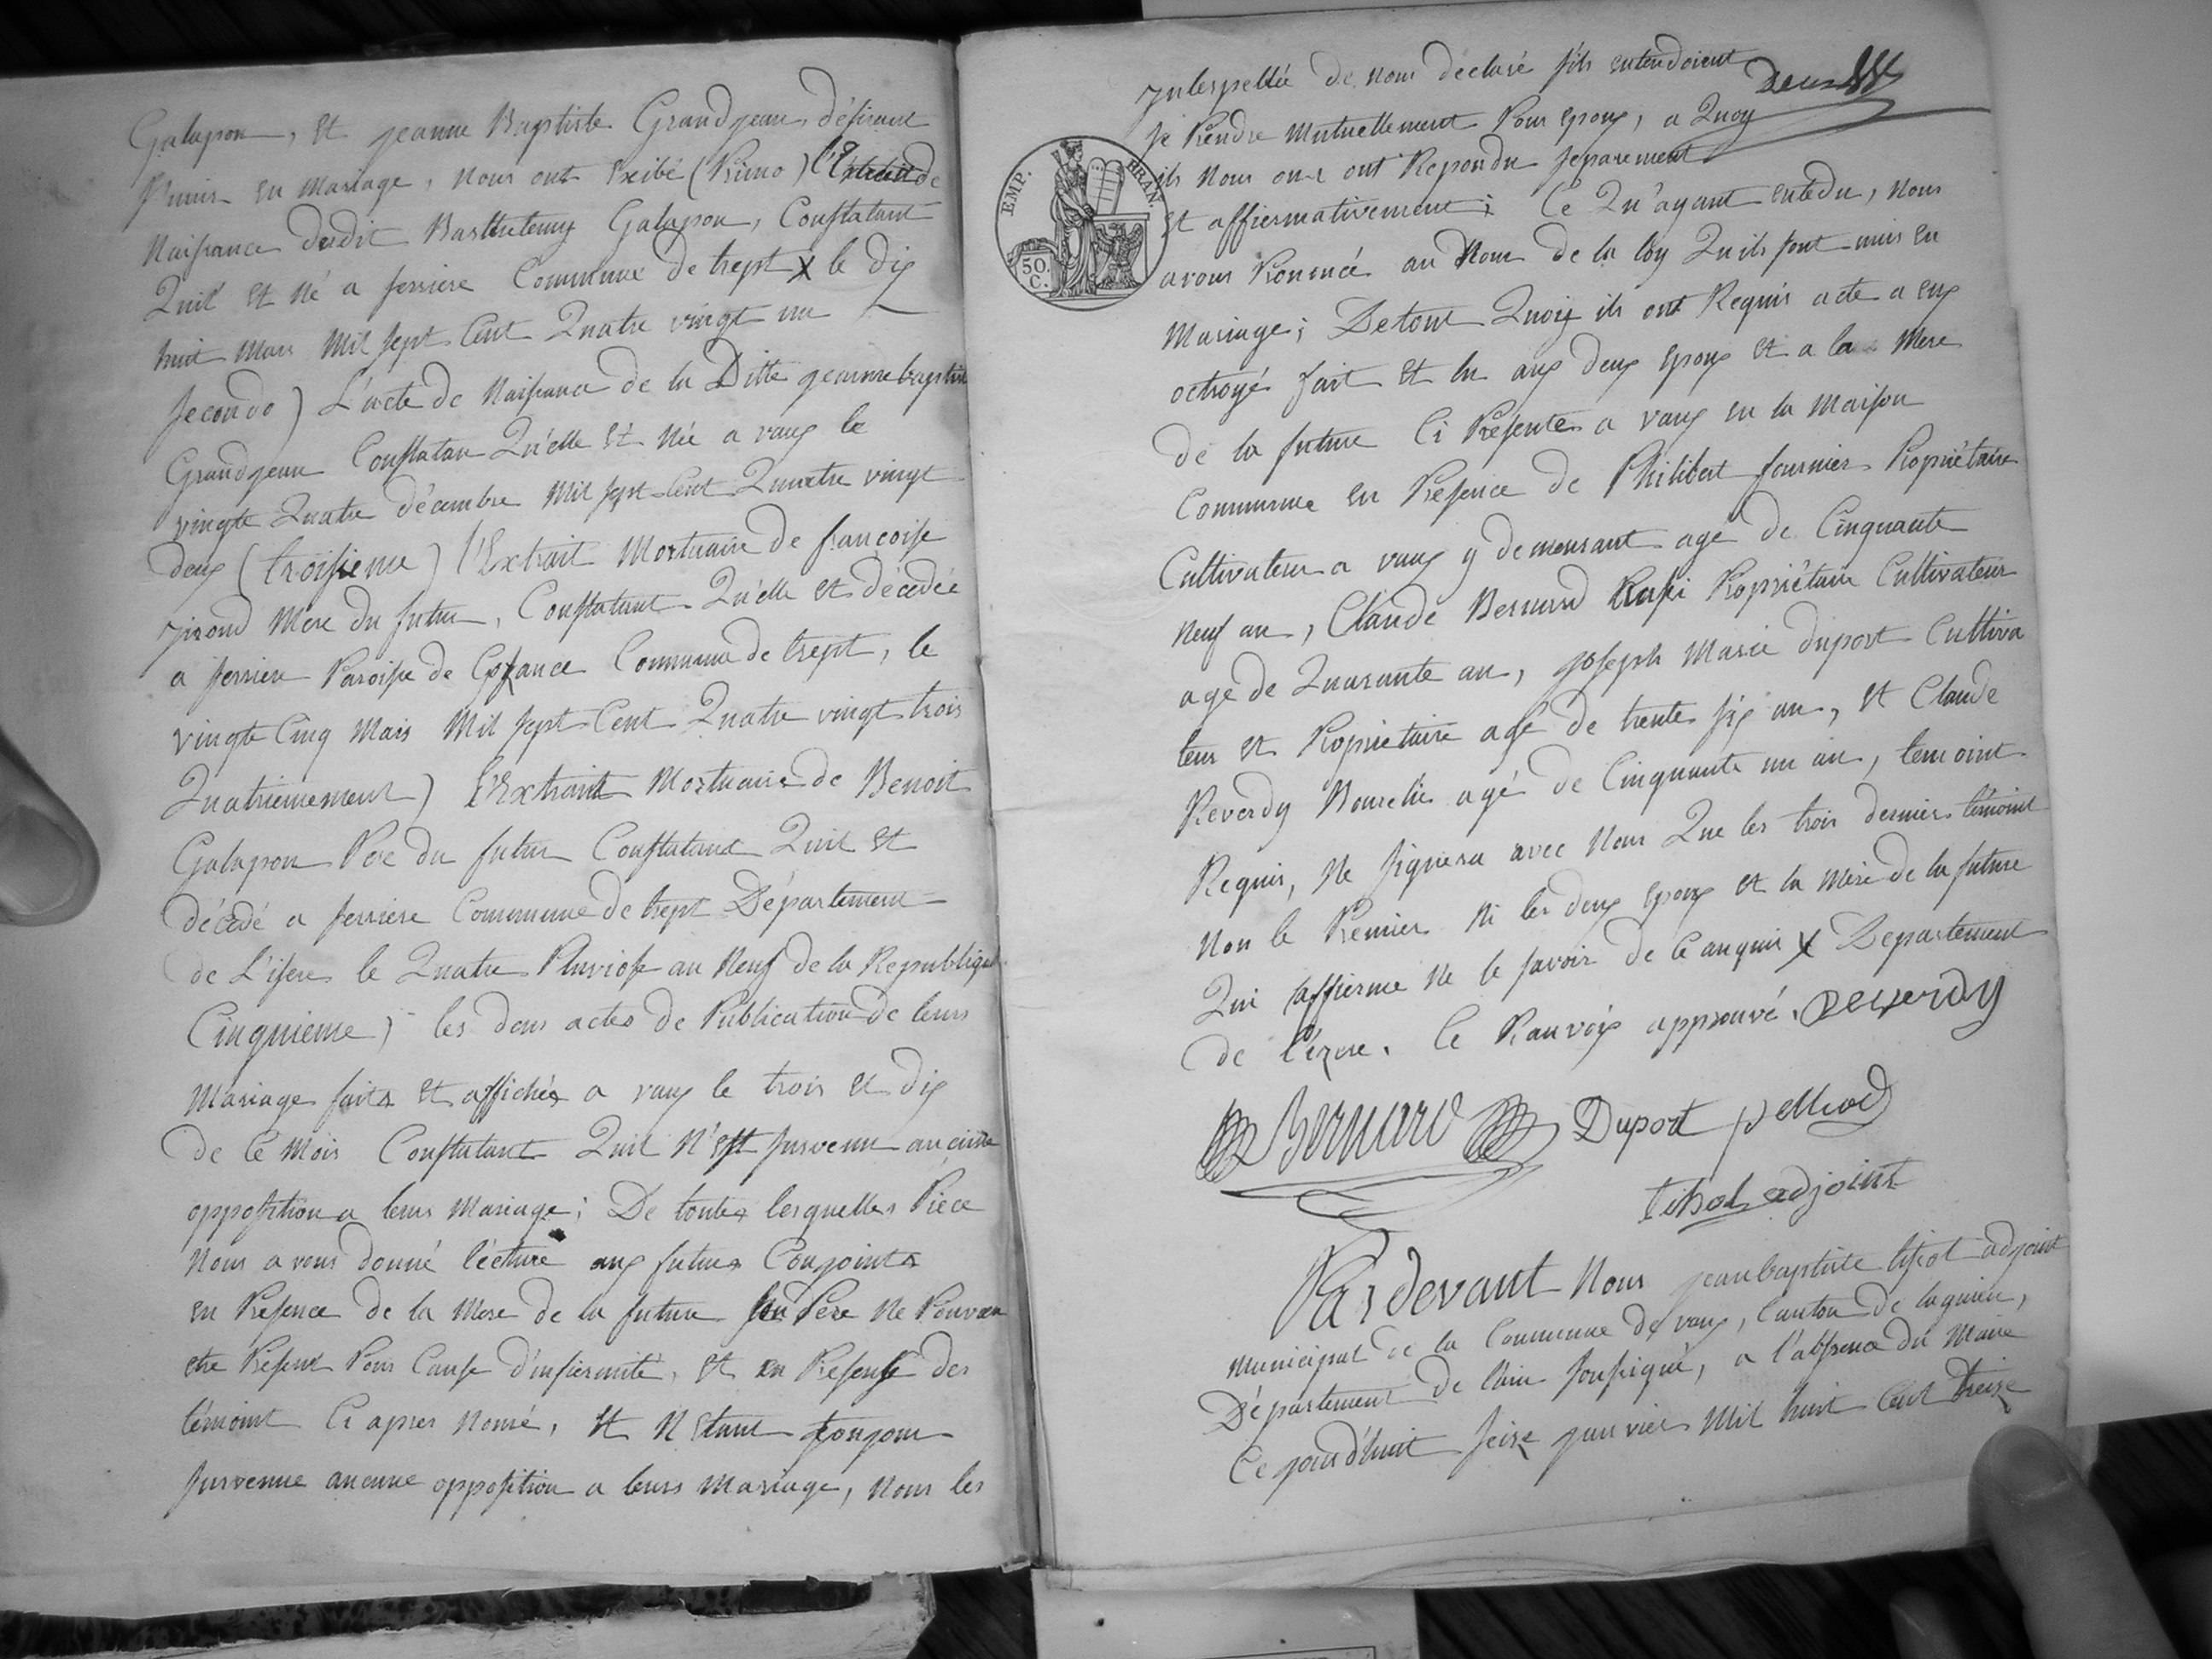 Galapon, et jeanne Baptiste Grandjean, désirant
s'unir en mariage, nous ont exibé (Primo) l'Extrait de
naissance dudit Barthelemy Galapon, Constatant
Quil et né a serriere Commune de trept X le dix
huit Mars Mil sept Cent Quatre vingt un
secondo) L'acte de Naissance de la Ditte jeanne baptiste
Grandjean Constatan Qu'elle et née a vaux le
vingte Quatre décembre Mil sept Cent Quatre vingt
deux (troisieme) l'Extrait Mortuaire de françoise
Mere du futur, Constatant Qu'elle et décédée
a serriere Paroisse de Commune de trept, le
vingte Cinq Mars Mil sept Cent Quatre vingt trois
Quatriemement) l'Extrait Mortuaire de Benoit
Galapon Pere du futur Constatant Quil et
décedé a serriere Commune de trept Département
de L'isere le Quatre Pluviose an Neuf de la Republique
Cinquieme) les deux actes de Publication de leurs
Mariage faits et affichés a vaux le trois et dix
de ce Mois Constatant Quil N'est survenu aucune
oppossition a leurs Mariage; De toutes lesquelles Piece
Nous avons donné lecture aux futurs Conjoints
en Presence de la Mere de la future son Pere Ne Pouvan
etre Présent Pour Cause d'infiermité, et en Presense des
témoint Ci apres Nomé, et N'etant
survenue aucune oppossition a leurs Mariage, Nous les
Interpellée de Nous declaré s'ils entendoient
se Prendre Mutuellement Pour epoux, a Quoy
ils Nous ont Repondu separement
et affiermativement; Ce Qu'ayant entedu, Nous
avons Prononcé au Nom de la loy Quils sont unis en
Mariage; De tout Quoy ils ont Requis acte a eux
octroyé fait et lu aux deux epoux et a la Mere
de la future Ci Présente a vaux en la Maison
Commune en Présence de Philibert fournier Propriétaire
Cultivateur a vaux y demeurant agé de Cinquante
Neuf an, Claude Bernard Propriétaire Cultivateur
age de Quarante an, joseph Marie duport Cultiva
teur et Propriétaire agé de trente six an, et Claude
Reverdy agé de Cinquante un an, temoint
Requis, Ne signera avec Nous Que les trois dernier témoint
Non le Premier Ni les deux epoux et la Mere de la future
Qui affierme Ne le savoir de Ce anquis X Departement
de l'izere. Ce Ranvoix approuvé. Reverdy
Bernard Duport
tisot adjoint
Par devant Nous jean baptiste tisot adjoint
Municipal de la Commune de vaux, Canton de lagnieu,
Département de l'ain soussigné, a l'absence du Maire
Ce jourd'huit seize janvier Mil huit Cent treize
EMP. FRAN.
50.
C.